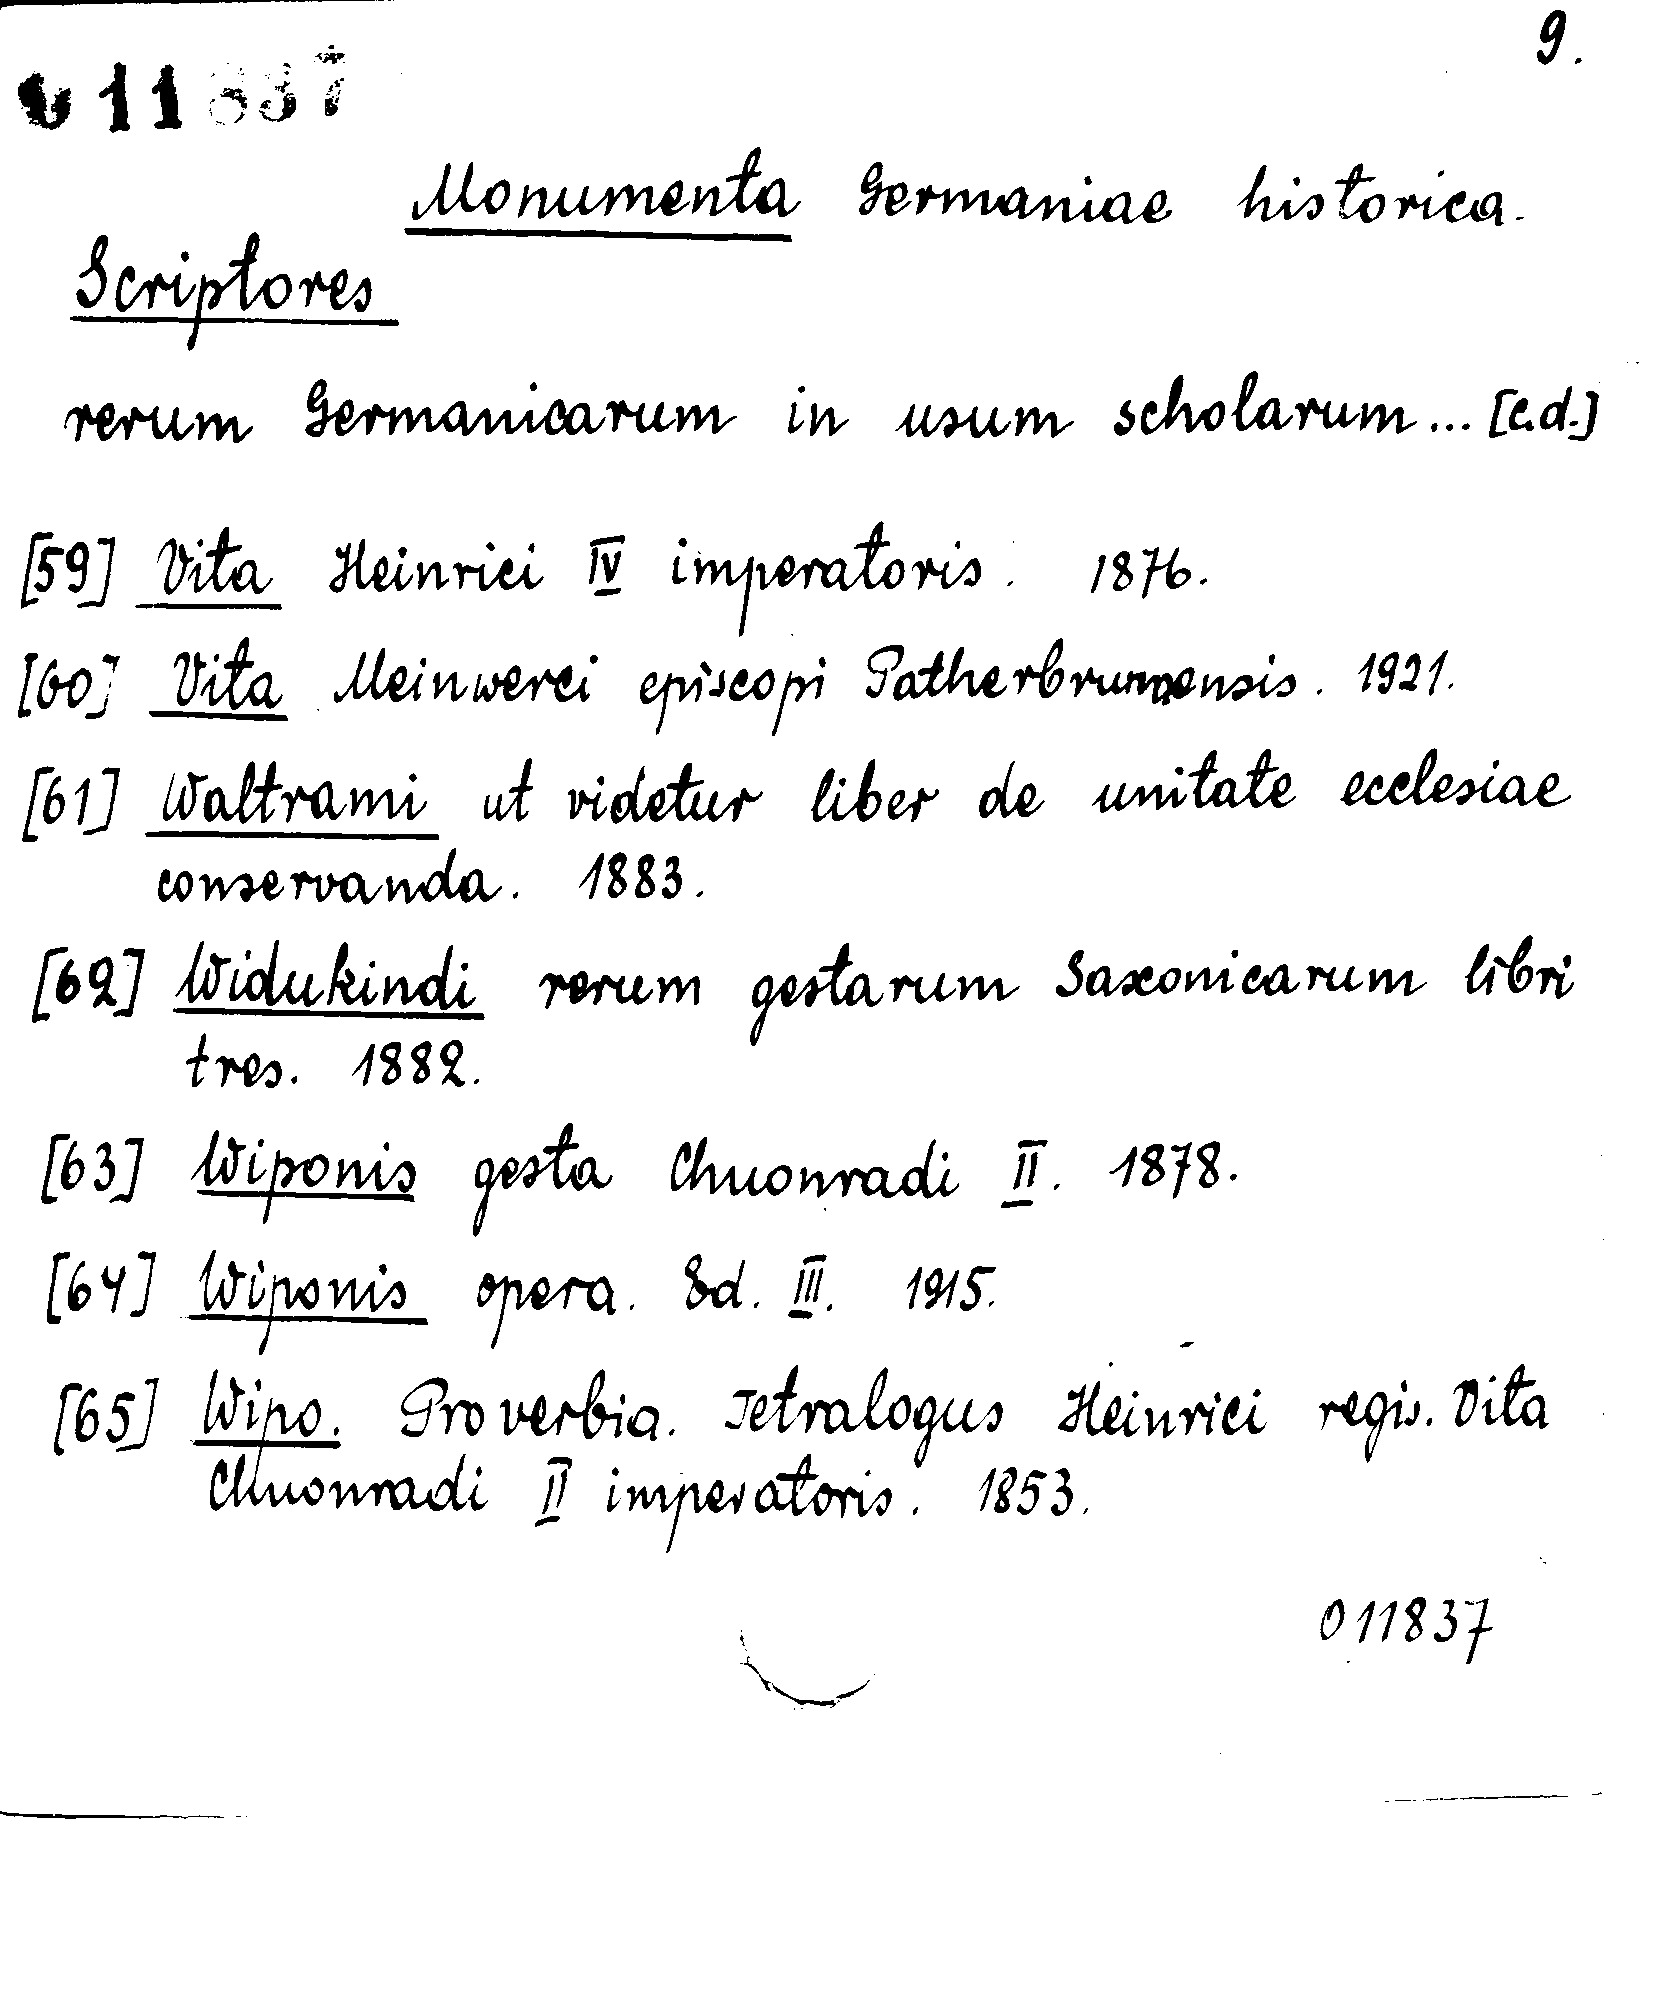 9.
011837
Monumenta Germaniae historica.
Scriptores
rerum Germanicarum in usum scholarum... [c.d.]
[59] Vita Heinrici IV imperatoris. 1876.
[60] Vita Meinwerci episcopi Patherbrunnensis. 1921.
[61] Waltrami ut videtur liber de unitate ecclesiae
conservanda. 1883.
[62] Widukindi rerum gestarum Saxonicarum libri
tres. 1882.
[63] Wiponis gesta Chuonradi II. 1878.
[64] Wiponis opera. Ed. III. 1915.
[65] Wipo. Proverbia. Tetralogus Heinrici regis. Vita
Chuonradi II imperatoris. 1853.
011837